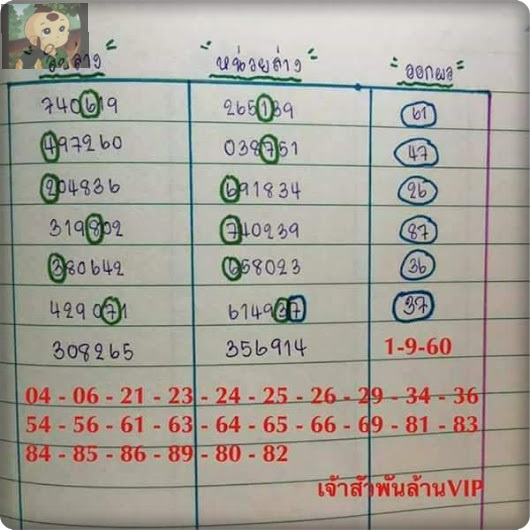 สิบล่าง หน่วยล่าง ออกผล
740619 265139 61
497260 038751 47
204836 691834 26
319802 740239 87
380642 658023 36
429071 614937 37
308265 356914 1-9-60
04 - 06 - 21 - 23 - 24 - 25 - 26 - 29 - 34 - 36
54 - 56 - 61 - 63 - 64 - 65 - 66 - 69 - 81 - 83
84 - 85 - 86 - 89 - 80 - 82
เจ้าสัวพันล้านVIP